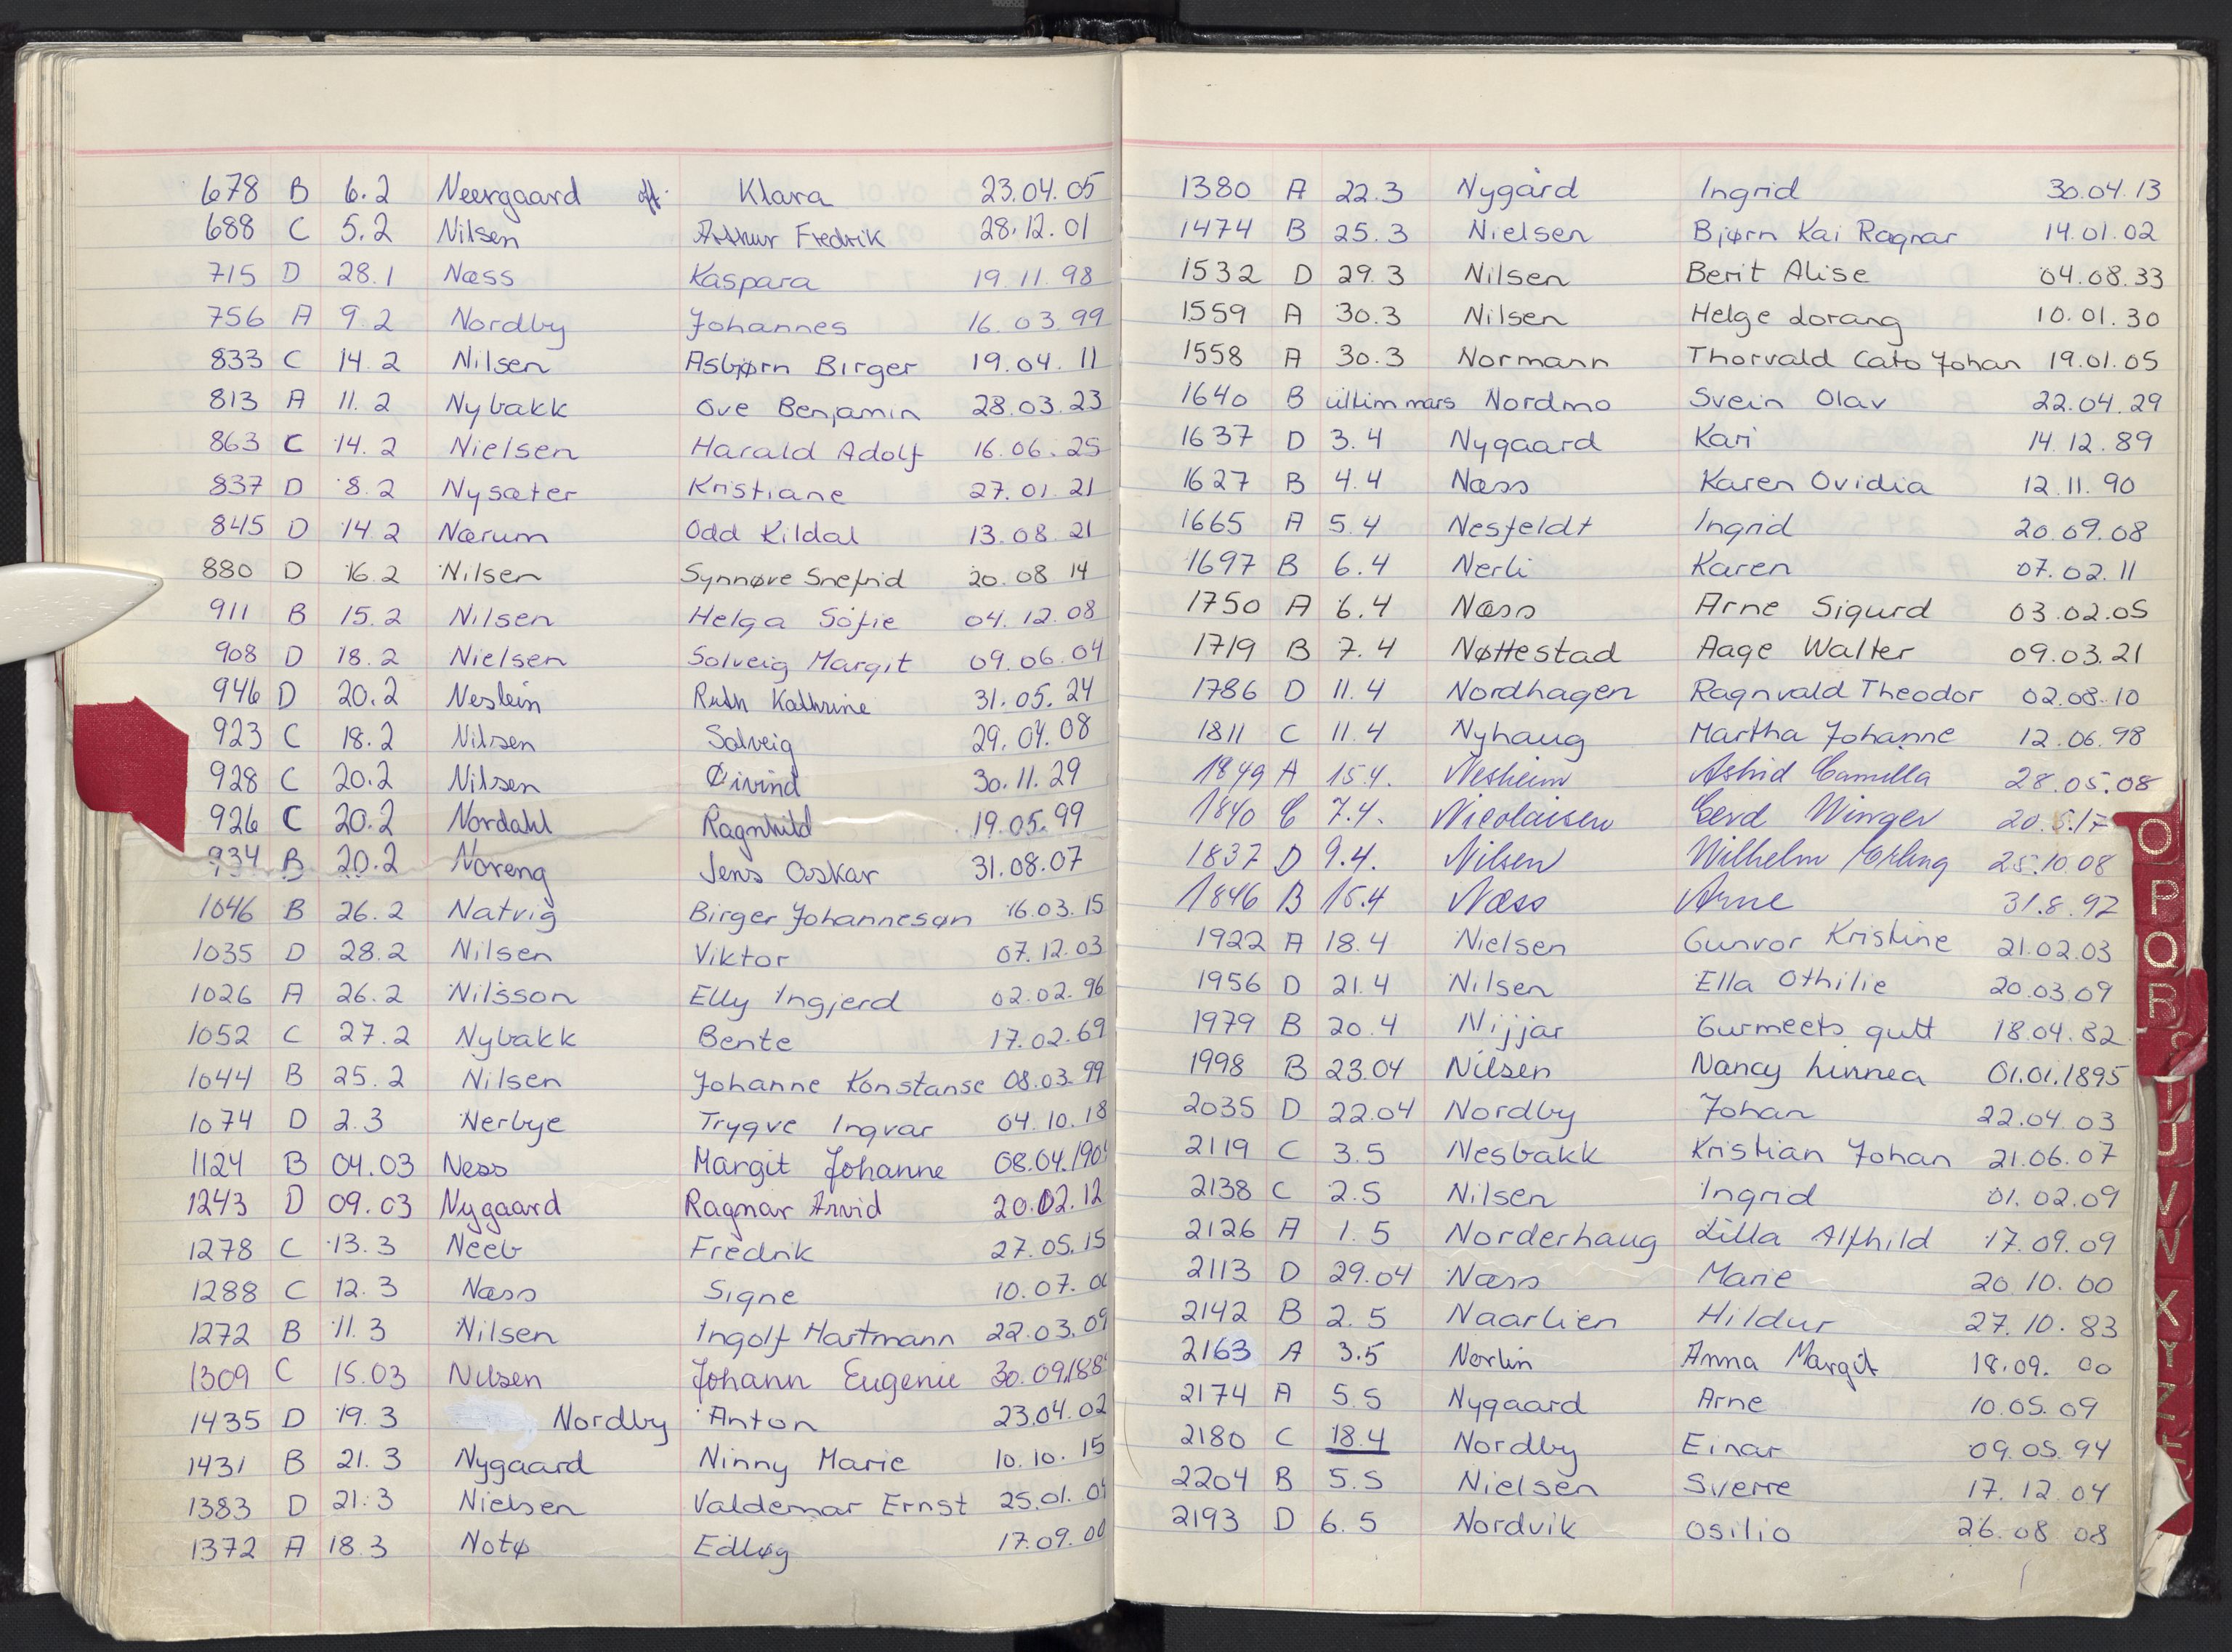 678 B 6.2 Neergaard Klara 23.04.05
688 C 5.2 Nilsen Arthur Fredrik 28.12.01
715 D 28.1 Næss Kaspara 19.11.98
756 A 9.2 Nordby Johannes 16.03.99
833 C 14.2 Nilsen Asbjørn Birger 19.04.11
813 A 11.2 Nybakk Ove Benjamin 28.03.23
863 C 14.2 Nielsen Harald Adolf 16.06.25
837 D 8.2 Nysæter Kristiane 27.01.21
845 D 14.2 Nærum Odd Kildal 13.08.21
880 D 16.2 Nilsen Synnøve Snefrid 20.08 14
911 B 15.2 Nilsen Helga Sofie 04.12.08
908 D 18.2 Nielsen Solveig Margit 09.06.04
946 D 20.2 Neslein Ruth Kathrine 31.05.24
923 C 18.2 Nilsen Solveig 29.04.08
928 C 20.2 Nilsen Øivind 30.11.29
926 C 20.2 Nordahl Ragnhild 19.05.99
934 B 20.2 Noreng Jens Oskar 31.08.07
1046 B 26.2 Natvig Birger Johannesøn 16.03.15
1035 D 28.2 Nilsen Viktor 07.12.03
1026 A 26.2 Nilsson Elly Ingjerd 02.02.96
1052 C 27.2 Nybakk Bente 17.02.69
1044 B 25.2 Nilsen Johanne Konstanse 08.03.99
1074 D 2.3 Nerbye Trygve Ingvar 04.10.18
1124 B 04.03 Ness Margit Johanne
1243 D 09.03 Nygaard Ragnar Arvid 20.02.12
1278 C 13.3 Neeb Fredrik 27.05.15
1288 C 12.3 Næss Signe 10.07.
1272 B 11.3 Nilsen Ingolf Hartmann 22.03.09
1309 C 15.03 Nilsen Johann Eugenie
1435 D 19.3 Nordby Anton 23.04.02
1431 B 21.3 Nygaard Ninny Marie 10.10.15
1383 D 21.3 Nielsen Valdemar Ernst 25.01.
1372 A 18.3 Notø Edløg 17.09.00
1380 A 22.3 Nygård Ingrid 30.04.13
1474 B 25.3 Nielsen Bjørn Kai Ragnar 14.01.02
1532 D 29.3 Nilsen Berit Alise 04.08.33
1559 A 30.3 Nilsen Helge Lorang 10.01.30
1558 A 30.3 Normann Thorvald Cato Johan 19.01.05
1640 B ultim mars Nordmo Svein Olav 22.04.29
1637 D 3.4 Nygaard Kari 14.12.89
1627 B 4.4 Næss Karen Ovidia 12.11.90
1665 A 5.4 Nesfeldt Ingrid 20.09.08
1697 B 6.4 Nerli Karen 07.02.11
1750 A 6.4 Næss Arne Sigurd 03.02.05
1719 B 7.4 Nøttestad Aage Walter 09.03.21
1786 D 11.4 Nordhagen Ragnvald Theodor 02.08.10
1811 C 11.4 Nyhaug Martha Johanne 12.06.98
1849 A 15.4. Nesheim Astrid Camilla 28.05.08
1840 C 7.4. Nicolaisen Gerd Winger 20.5.17
1837 D 9.4. Nilsen Wilhelm Erling 25.10.08
1846 B 15.4 Næss Arne 31.8.92
1922 A 18.4 Nielsen Gunvor Kristine 21.02.03
1956 D 21.4 Nilsen Ella Othilie 20.03.09
1979 B 20.4 Nijjar Gurmeets gutt 18.04.82
1998 B 23.04 Nilsen Nancy Linnea 01.01.1895
2035 D 22.04 Nordby Johan 22.04.03
2119 C 3.5 Nesbakk Kristian Johan 21.06.07
2138 C 2.5 Nilsen Ingrid 01.02.09
2126 A 1.5 Norderhaug Lilla Alfhild 17.09.09
2113 D 29.04 Næss Marie 20.10.00
2142 B 2.5 Naarlien Hildur 27.10.83
2163 A 3.5 Norlin Anna Margit 18.09.00
2174 A 5.5 Nygaard Arne 10.05.09
2180 C 18.4 Nordby Einar 09.05.94
2204 B 5.5 Nielsen Sverre 17.12.04
2193 D 6.5 Nordvik Osilio 26.08 08
O
P
Q
R
T
U
V
X
Y
Z